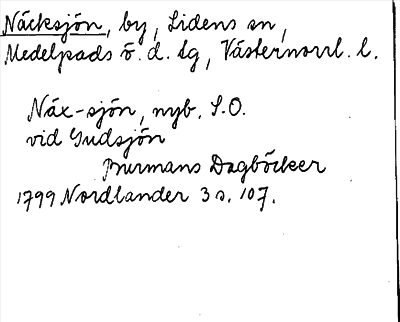 Näcksjön, by, Lidens sn,
Medelpads ö. d. tg, Västernorrl. l.
Näx-sjön, nyb. S.O.
vid Gudsjön
Burmans Dagböcker
1799 Nordlander 3 s. 107.